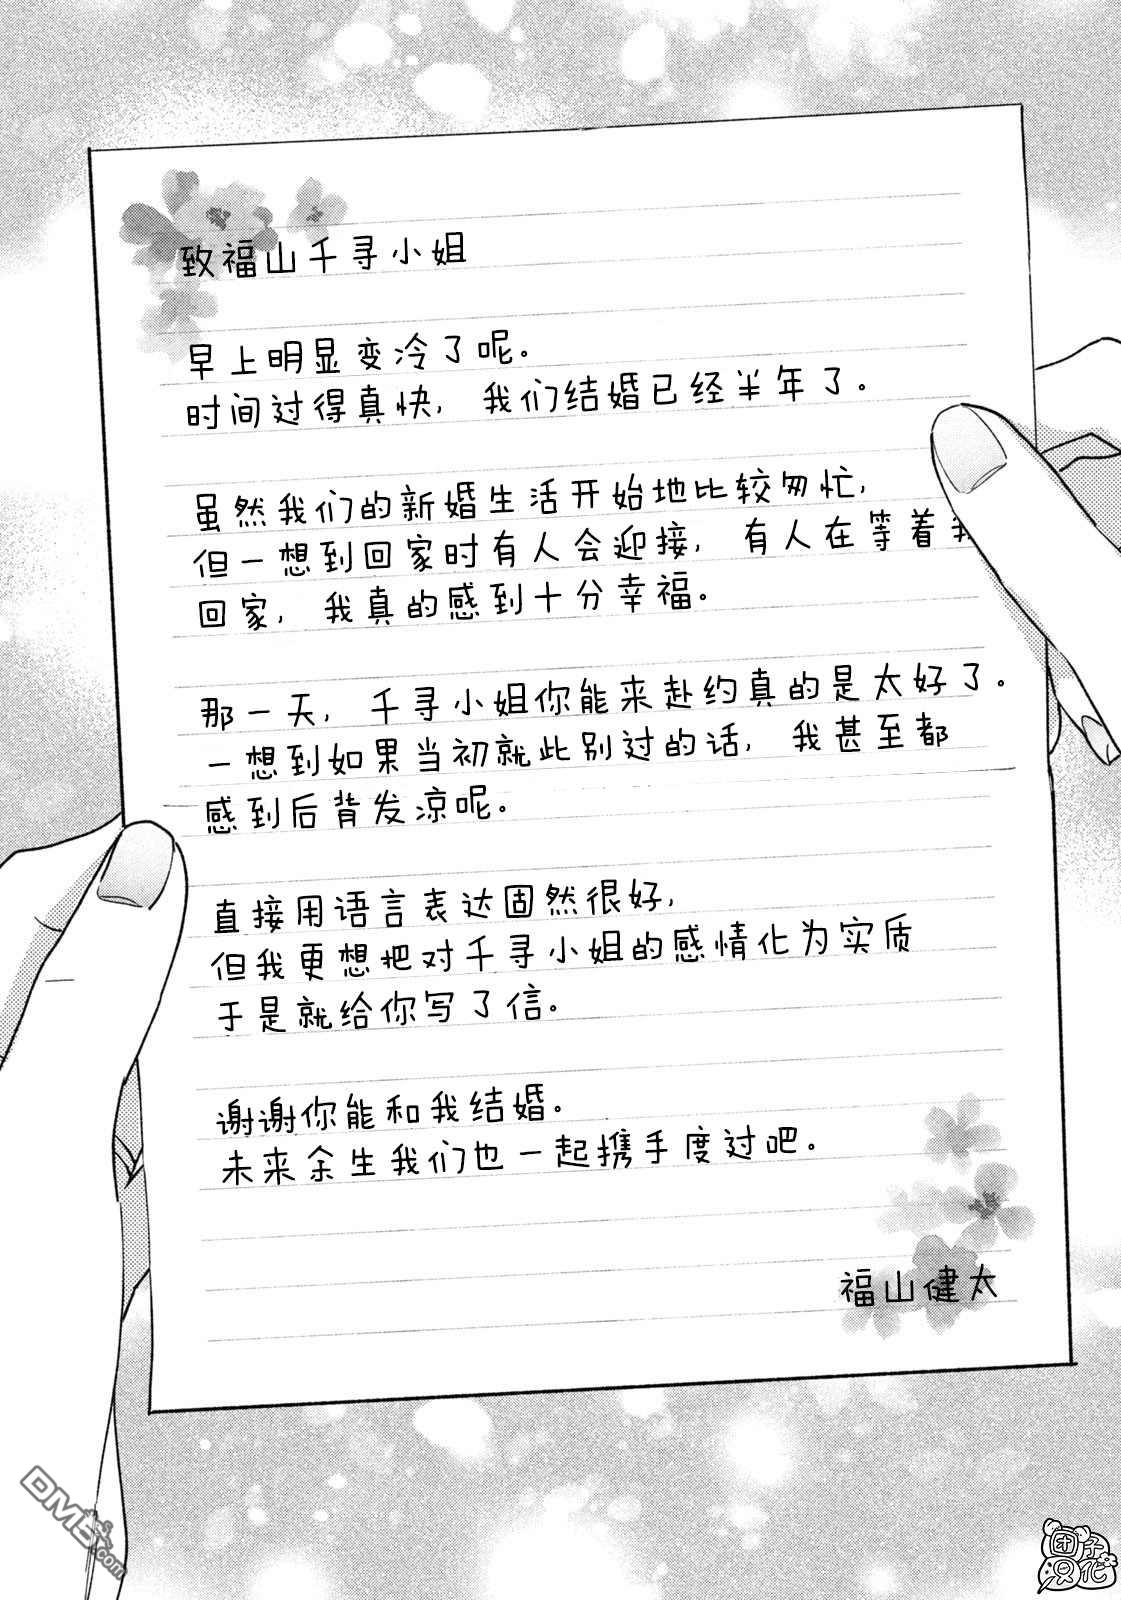 致福山千寻小姐
早上明显变冷了呢。
时间过得真快，我们结婚已经半年了。
虽然我们的新婚生活开始地比较匆忙，
但一想到回家时有人会迎接，有人在等着我
回家，我真的感到十分幸福。
那一天，千寻小姐你能来赴约真的是太好了。
一想到如果当初就此别过的话，我甚至都
感到后背发凉呢。
直接用语言表达固然很好，
但我更想把对千寻小姐的感情化为实质
于是就给你写了信。
谢谢你能和我结婚。
未来余生我们也一起携手度过吧。
福山健太
DM5.com
团子
汉化